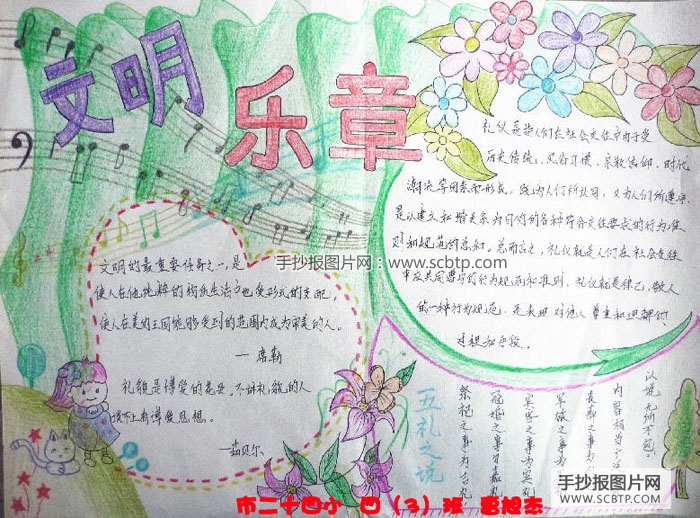 文明
乐章
手抄报图片网
www.scbtp.com
礼仪是指人们在社会交往中由于受
历史传统、风俗习惯、宗教信仰、时代
潮流等因素而形成，既为人们所认同，又为人们所遵守，
是以建立和谐关系为目的的各种符合交往要求的行为准
则和规范的总和。总而言之，礼仪就是人们在社会交往
中应共同遵守的行为规范和准则。礼仪就是律己，敬人
的一种行为规范，是表现对他人尊重和理解的
过程和手段。
手抄报图片网：www.scbtp.com
文明的最重要任务之一，是
使人在他纯粹的物质生活中也受形式的支配，
使人在美的王国能够受到的范围内成为审美的人。
—席勒
礼貌是博爱的花朵。不讲礼貌的人
谈不上有博爱思想。
—茹贝尔
五礼之说
祭祀之事为吉礼
冠婚之事为嘉礼
宾客之事为宾礼
军旅之事为
丧葬之事为
内容相当
以说，无所不包。
手抄报图片网
WWW.SCBTP.COM
市二十四小 四（3）班